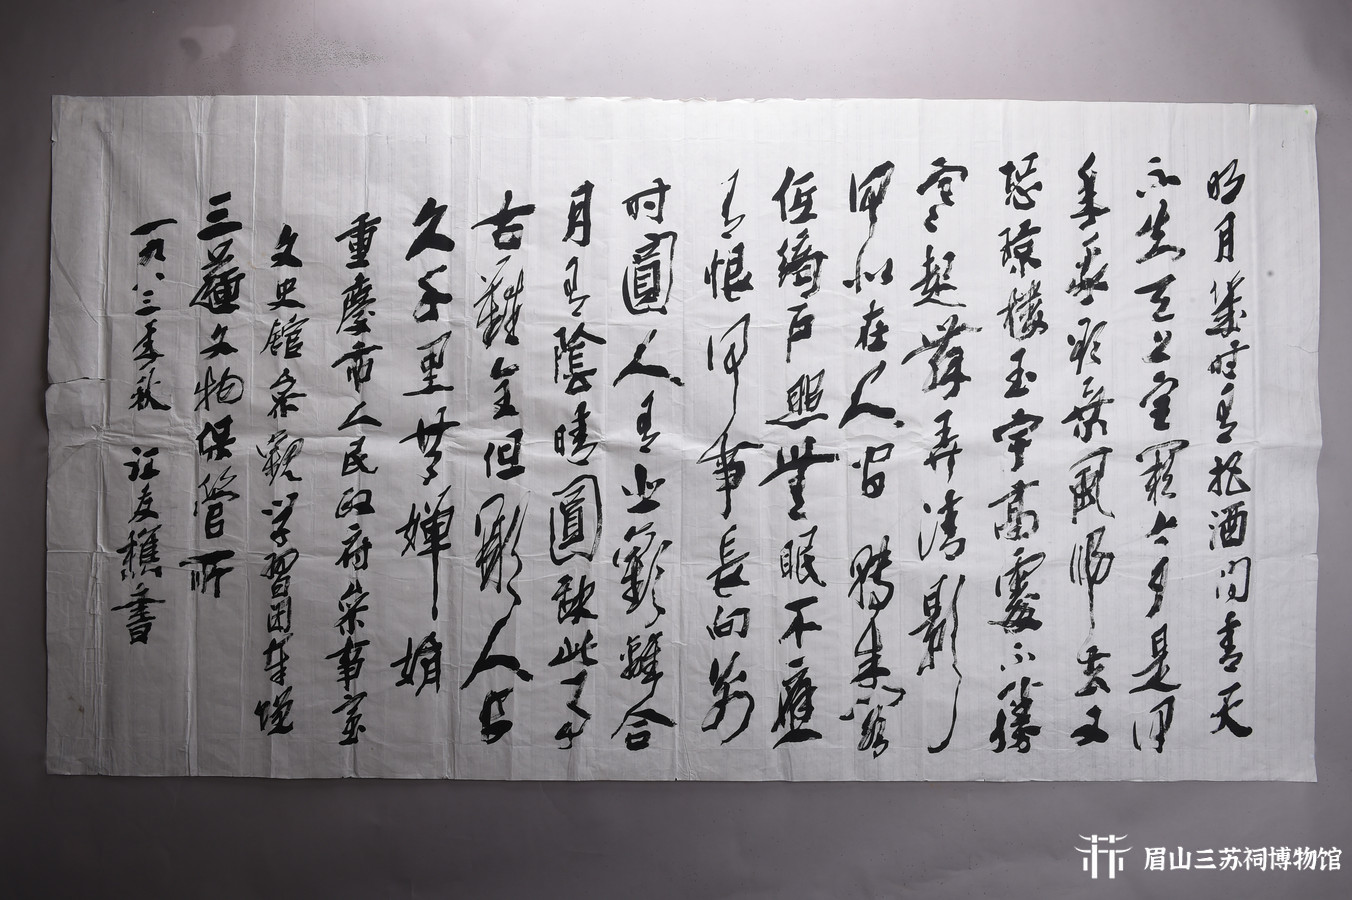 明月幾时有把酒问青天
不知天上宫阙今夕是何
年我欲乘風归去又
恐琼楼玉宇高處不勝
寒起舞弄清影
何似在人间 转朱阁
低绮户照無眠不應
有恨何事長向别
时圓人有悲歡離合
月有陰晴圓缺此事
古難全但願人长
久千里共嬋娟
重慶市人民政府参事室
文史館参觀学習团奉赠
三蘇文物保管所
一九八三年秋 江友樵書
眉山三苏祠博物馆